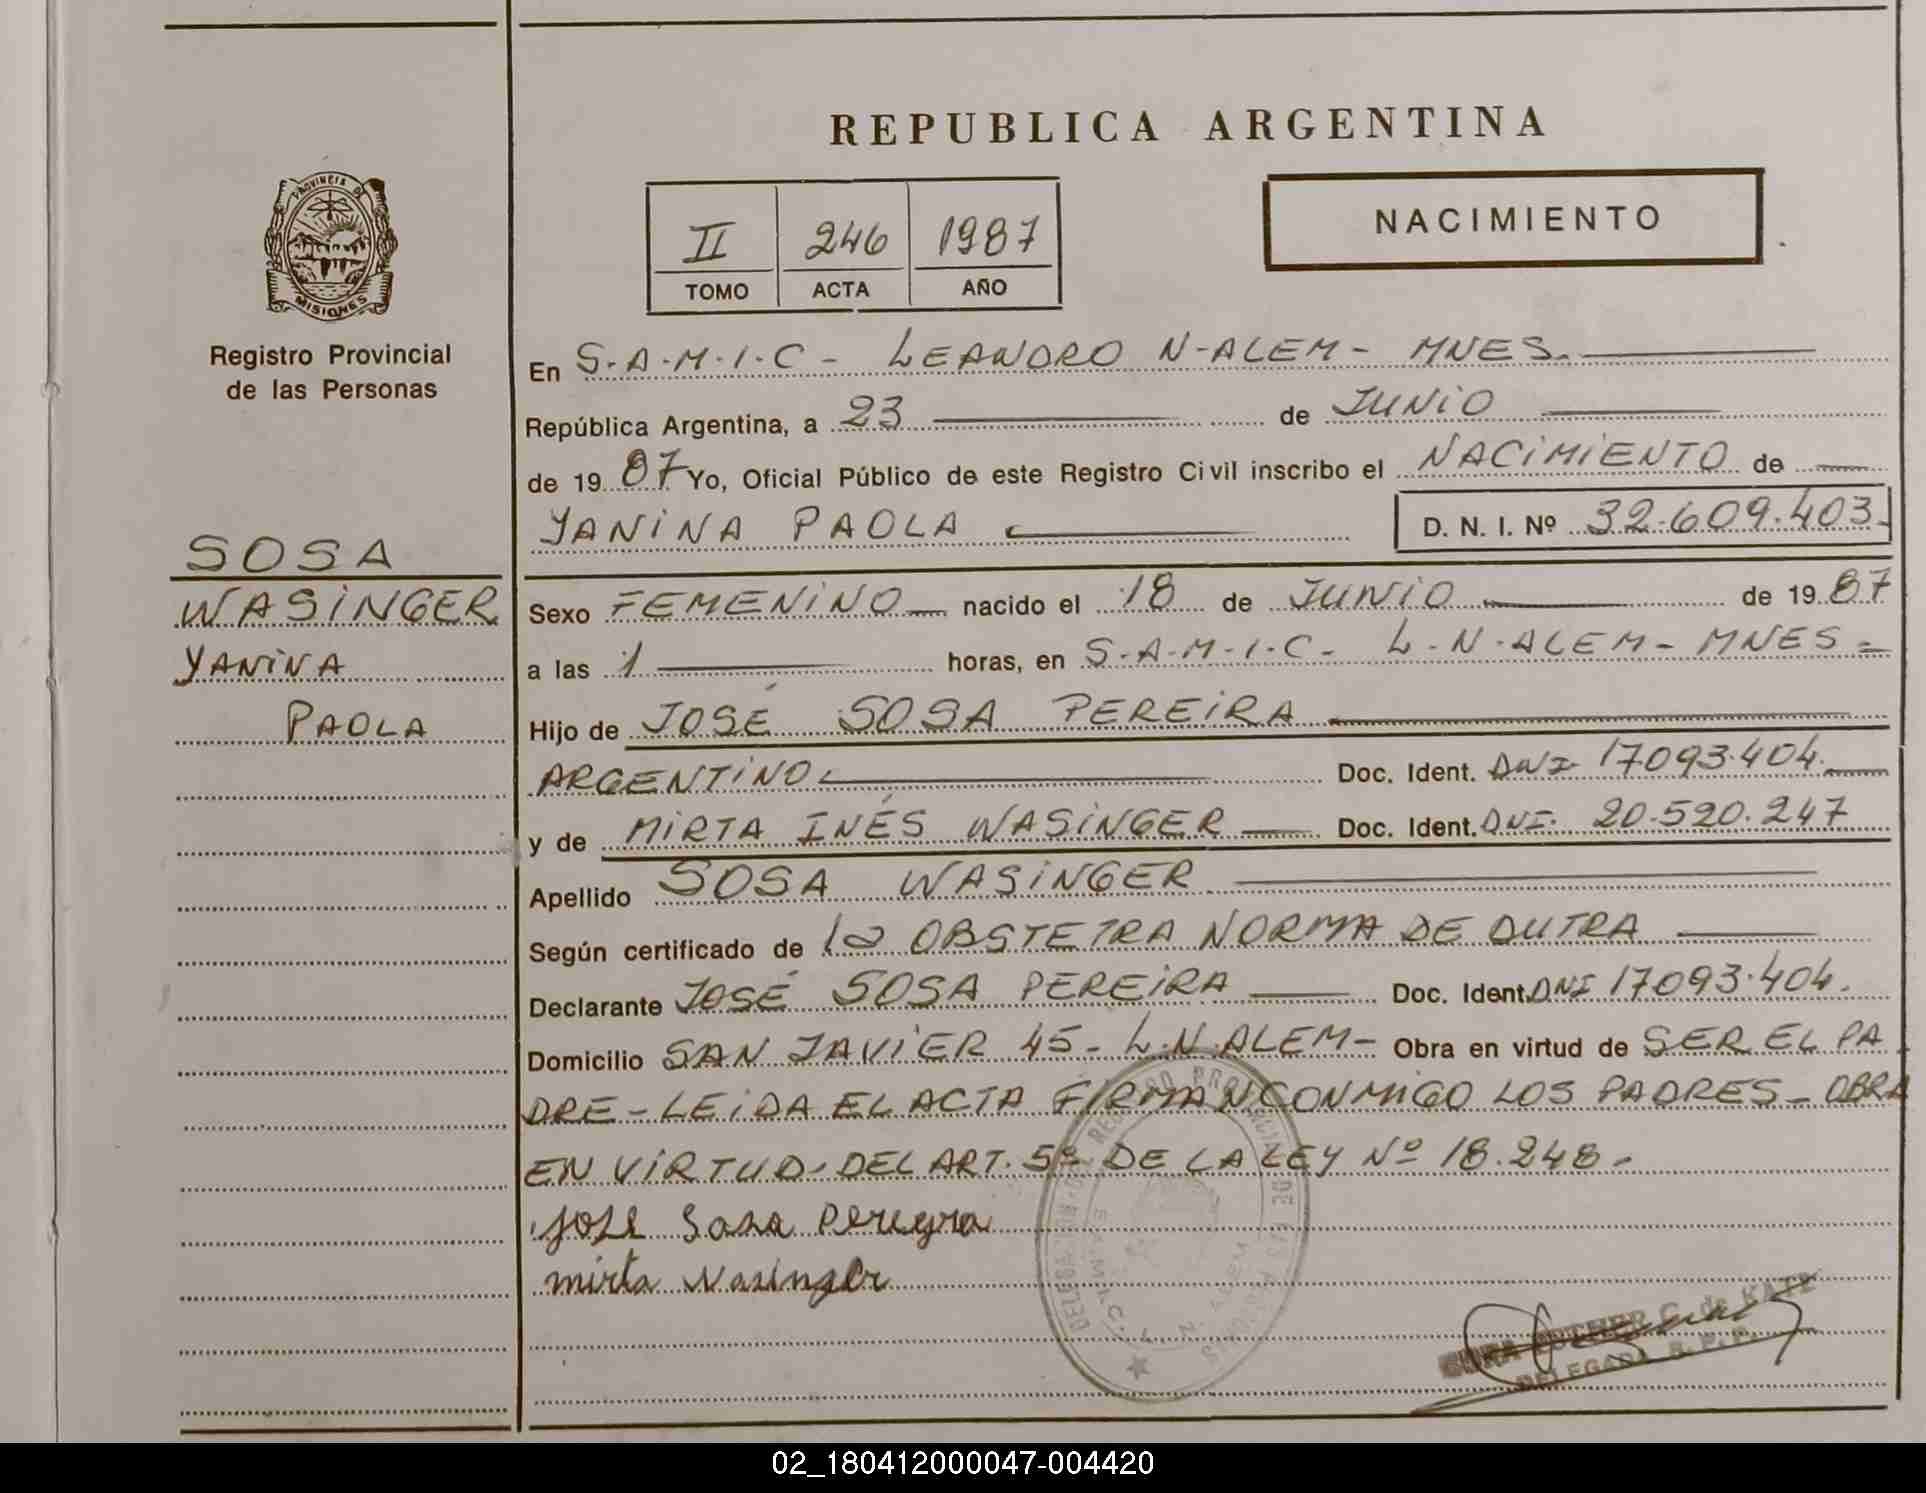 REPUBLICA ARGENTINA
PROVINCIA DE
MISIONES
Registro Provincial
de las Personas
II 246 1987
TOMO ACTA AÑO
NACIMIENTO
SOSA
WASINGER
YANINA
PAOLA
En S.A.M.I.C - LEANDRO N-ALEM - MNES.
República Argentina, a 23 de JUNIO
de 19 87 Yo, Oficial Público de este Registro Civil inscribo el NACIMIENTO de
YANINA PAOLA D. N. I. Nº 32.609.403.
Sexo FEMENINO nacido el 18 de JUNIO de 19 87
a las 1 horas, en S.A.M.I.C. L.N.ALEM - MNES =
Hijo de JOSÉ SOSA PEREIRA
ARGENTINO Doc. Ident. DNI 17093.404.
y de MIRTA INÉS WASINGER Doc. Ident. DNI. 20.520.247
Apellido SOSA WASINGER
Según certificado de la OBSTETRA NORMA DE DUTRA
Declarante JOSÉ SOSA PEREIRA Doc. Ident. DNI 17093.404.
Domicilio SAN JAVIER 45 - L.N.ALEM - Obra en virtud de SER EL PA
DRE - LEIDA EL ACTA FIRMAN CONMIGO LOS PADRES - OBRA
EN VIRTUD DEL ART. 5º DE LA LEY Nº 18.248.
José Sosa Pereyra
mirta Wasinger
C. de KATZ
DELEGADA R. P. P.
02_180412000047-004420